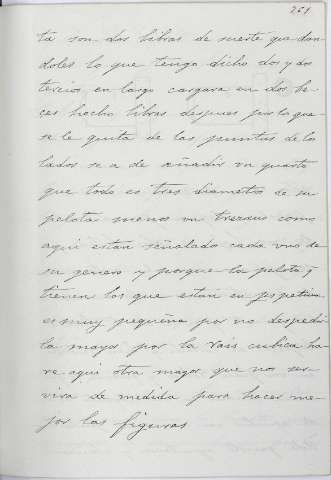 261
ta son dos libras de suerte que dan
doles lo que tengo dicho dos y dos
tercios en largo cargara en dos be
ces hecho libras despues justo que
se le quita de las puntas de los
lados se a de añadir un quarto
que todo es tres diametros de su
pelota menos un trezavo como
aqui estan señalado cada uno de
su genero y porque la pelota q
tienen los que estan en pspetiva
es muy pequeña por no despedir
la mayor por la rais cubica ha
re aqui otra mayor que nos ser
vira de medida para hacer me
jor las figuras